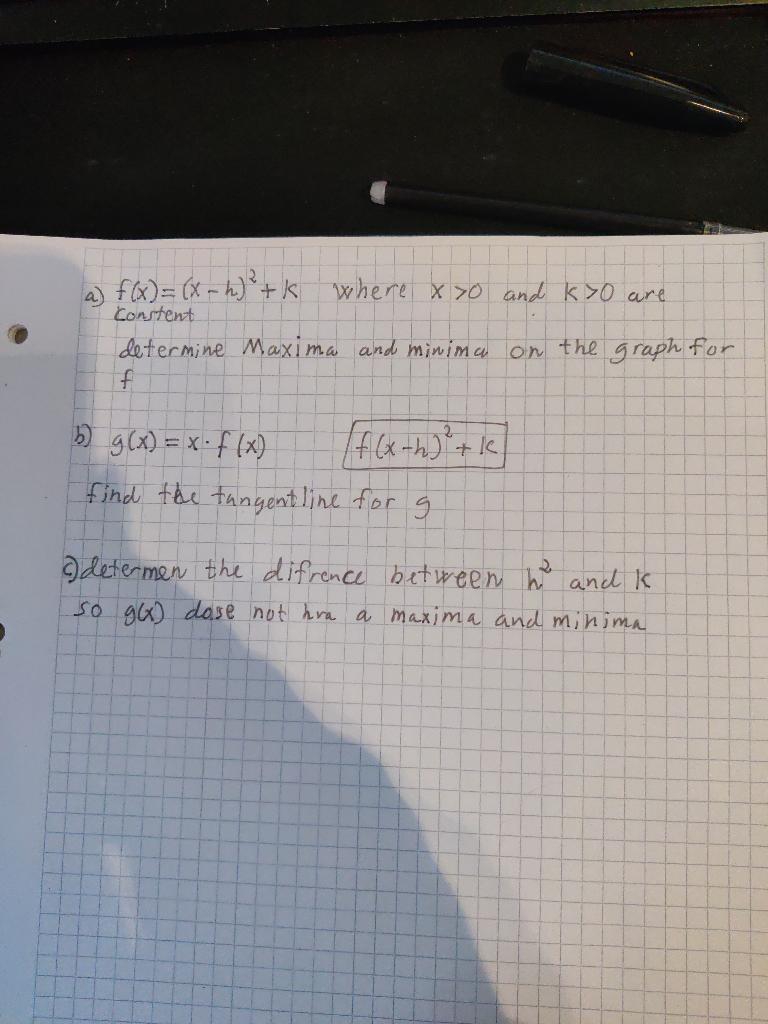 a) f(x) = (x - h)² + k where x >0 and k >0 are
constent
determine Maxima and minima on the graph for
f
b) g(x) = x · f(x) f(x-h)² + k
find the tangentline for g
c) determen the difrence between h² and k
so g(x) dose not hva a maxima and minima